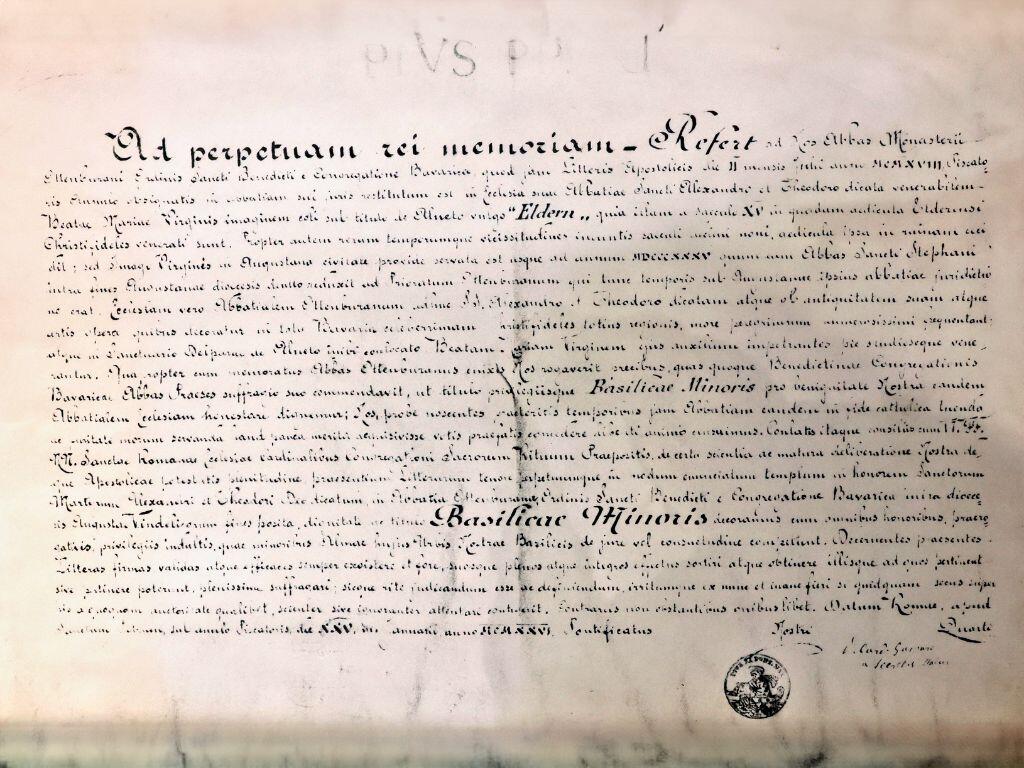 PIVS PP. XI
Ad perpetuam rei memoriam - Refert ad Nos Abbas Monasterii
Ottenburani Ordinis Sancti Benedicti e Congregatione Bavarica, quod jam Litteris Apostolicis die II mensis Julii anno MCMXVIII, Piscato
ris Annulo obsignatis in Abbatiam sui juris restitutum est, in Ecclesia suae Abbatiae Sanctis Alexandro et Theodoro dicata venerabilem
Beatae Mariae Virginis imaginem coli sub titulo de Alneto vulgo "Eldern„ quia illam a saeculo XV in quodam aedicula Elderensi
Christifideles venerati sunt. Propter autem rerum temporumque vicissitudines ineuntis saeculi decimi noni, aedicula ipsa in ruinam ceci
dit; sed Imago Virginis in Augustana civitate provide servata est usque ad annum MDCCCXXXV quum eam Abbas Sancti Stephani
intra fines Augustanae dioecesis reduxit ad Prioratum Ottenburanum qui tunc temporis sub ipsius abbatiae juridictio
ne erat. Ecclesiam vero Abbatialem Ottenburanam SS. Alexandro et Theodoro dicatam atque ob antiquitatem suam atque
artis opera quibus decoratur in tota Bavaria celeberrimam Christifideles totius regionis, more peregrinorum numerosissimi frequentant,
atque in Sanctuario Deiparae de Alneto inibi conlocato Beatam Mariam Virginem ejus auxilium impetrantes pie studioseque vene
rantur. Qua propter cum memoratus Abbas Ottenburanus enixis Nos rogaverit precibus, quas quoque Benedictinae Congregationis
Bavaricae Abbas Praeses suffragio suo commendavit, ut titulo privilegiisque Basilicae Minoris pro benignitate Nostra eandem
Abbatialem Ecclesiam honestare dignemur; Nos, probe noscentes praeteritis temporibus jam Abbatiam eandem in fide catholica tuenda
ac morum servanda haud pauca merita acquisivisse votis praefatis concedere libenti animo censuimus. Conlatis itaque consiliis cum VV. FF.
NN. Sanctae Romanae Ecclesiae Cardinalibus Congregationi Sacrorum Rituum Praepositis, de certa scientia ac matura deliberatione Nostra de
que Apostolicae potestatis plenitudine, praesentium Litterarum tenore perpetuumque in modum enunciatum templum in honorem Sanctorum
Martyrum Alexandri et Theodori Deo dicatum, in Abbatia Ottenburana Ordinis Sancti Benedicti e Congregatione Bavarica intra dioece
sis Augustae Vindelicorum fines posita, dignitate ac titulo Basilicae Minoris decoramus cum omnibus honoribus, praero
gativis, privilegiis indultis, quae minoribus Almae hujus Urbis Nostrae Basilicis de jure vel consuetudine competunt. Decernentes praesentes
Litteras firmas validas atque efficaces semper exsistere et fore, suosque plenos atque integros effectus sortiri atque obtinere illisque ad quos pertinent
sive pertinere poterunt, plenissime suffragari; sicque rite judicandum esse ac definiendum, irritumque ex nunc et inane fieri si quidquam secus super
his a quoquam auctoritate qualibet, scienter sive ignoranter attentari contigerit. Contrariis non obstantibus quibuslibet. Datum Romae, apud
Sanctum Petrum, sub annulo Piscatoris, die XXV, m. Januarii anno MCMXXVI, Pontificatus Nostri Quarto
P. Card. Gasparri
a Secretis Status